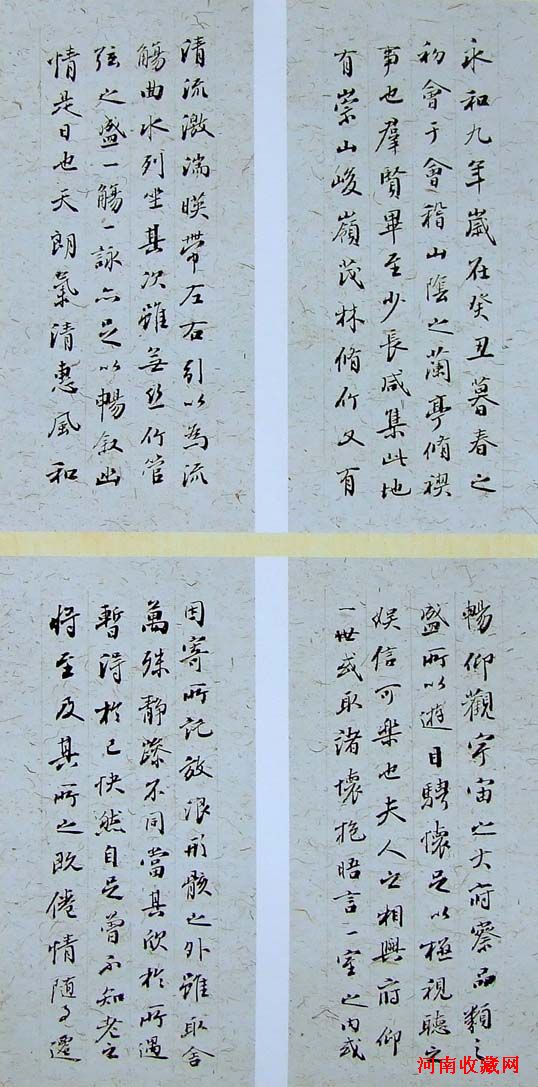 永和九年歲在癸丑暮春之
初會于會稽山陰之蘭亭脩禊
事也羣賢畢至少長咸集此地
有崇山峻嶺茂林脩竹又有
清流激湍暎帶左右引以為流
觴曲水列坐其次雖無絲竹管
弦之盛一觴一詠亦足以暢敘幽
情是日也天朗氣清惠風和
暢仰觀宇宙之大府察品類之
盛所以遊目騁懷足以極視聽之
娛信可樂也夫人之相與府仰
一世或取諸懷抱晤言一室之內或
因寄所託放浪形骸之外雖取舍
萬殊靜躁不同當其欣於所遇
暫得於己快然自足曾不知老之
將至及其所之既倦情隨事遷
河南收藏网